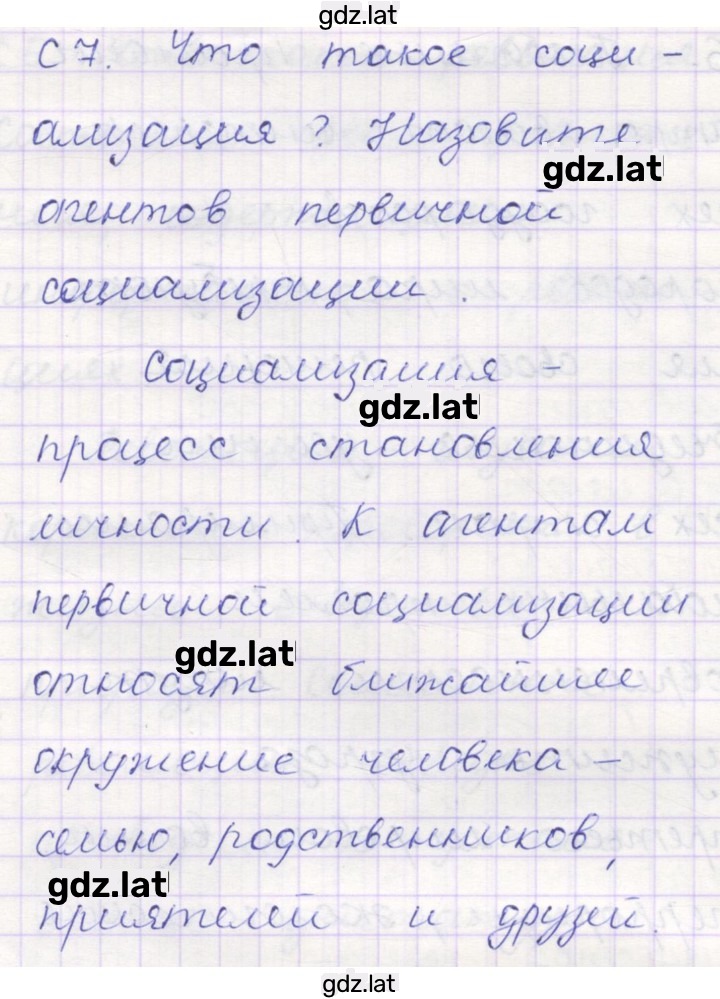 gdz.lat
С 7. Что такое соци-
ализация? Назовите
gdz.lat
агентов первичной
социализации.
Социализация -
gdz.lat
процесс становления
личности. К агентам
первичной социализации
gdz.lat
относят ближайшее
окружение человека -
семью, родственников,
gdz.lat
приятелей и друзей.
gdz.lat